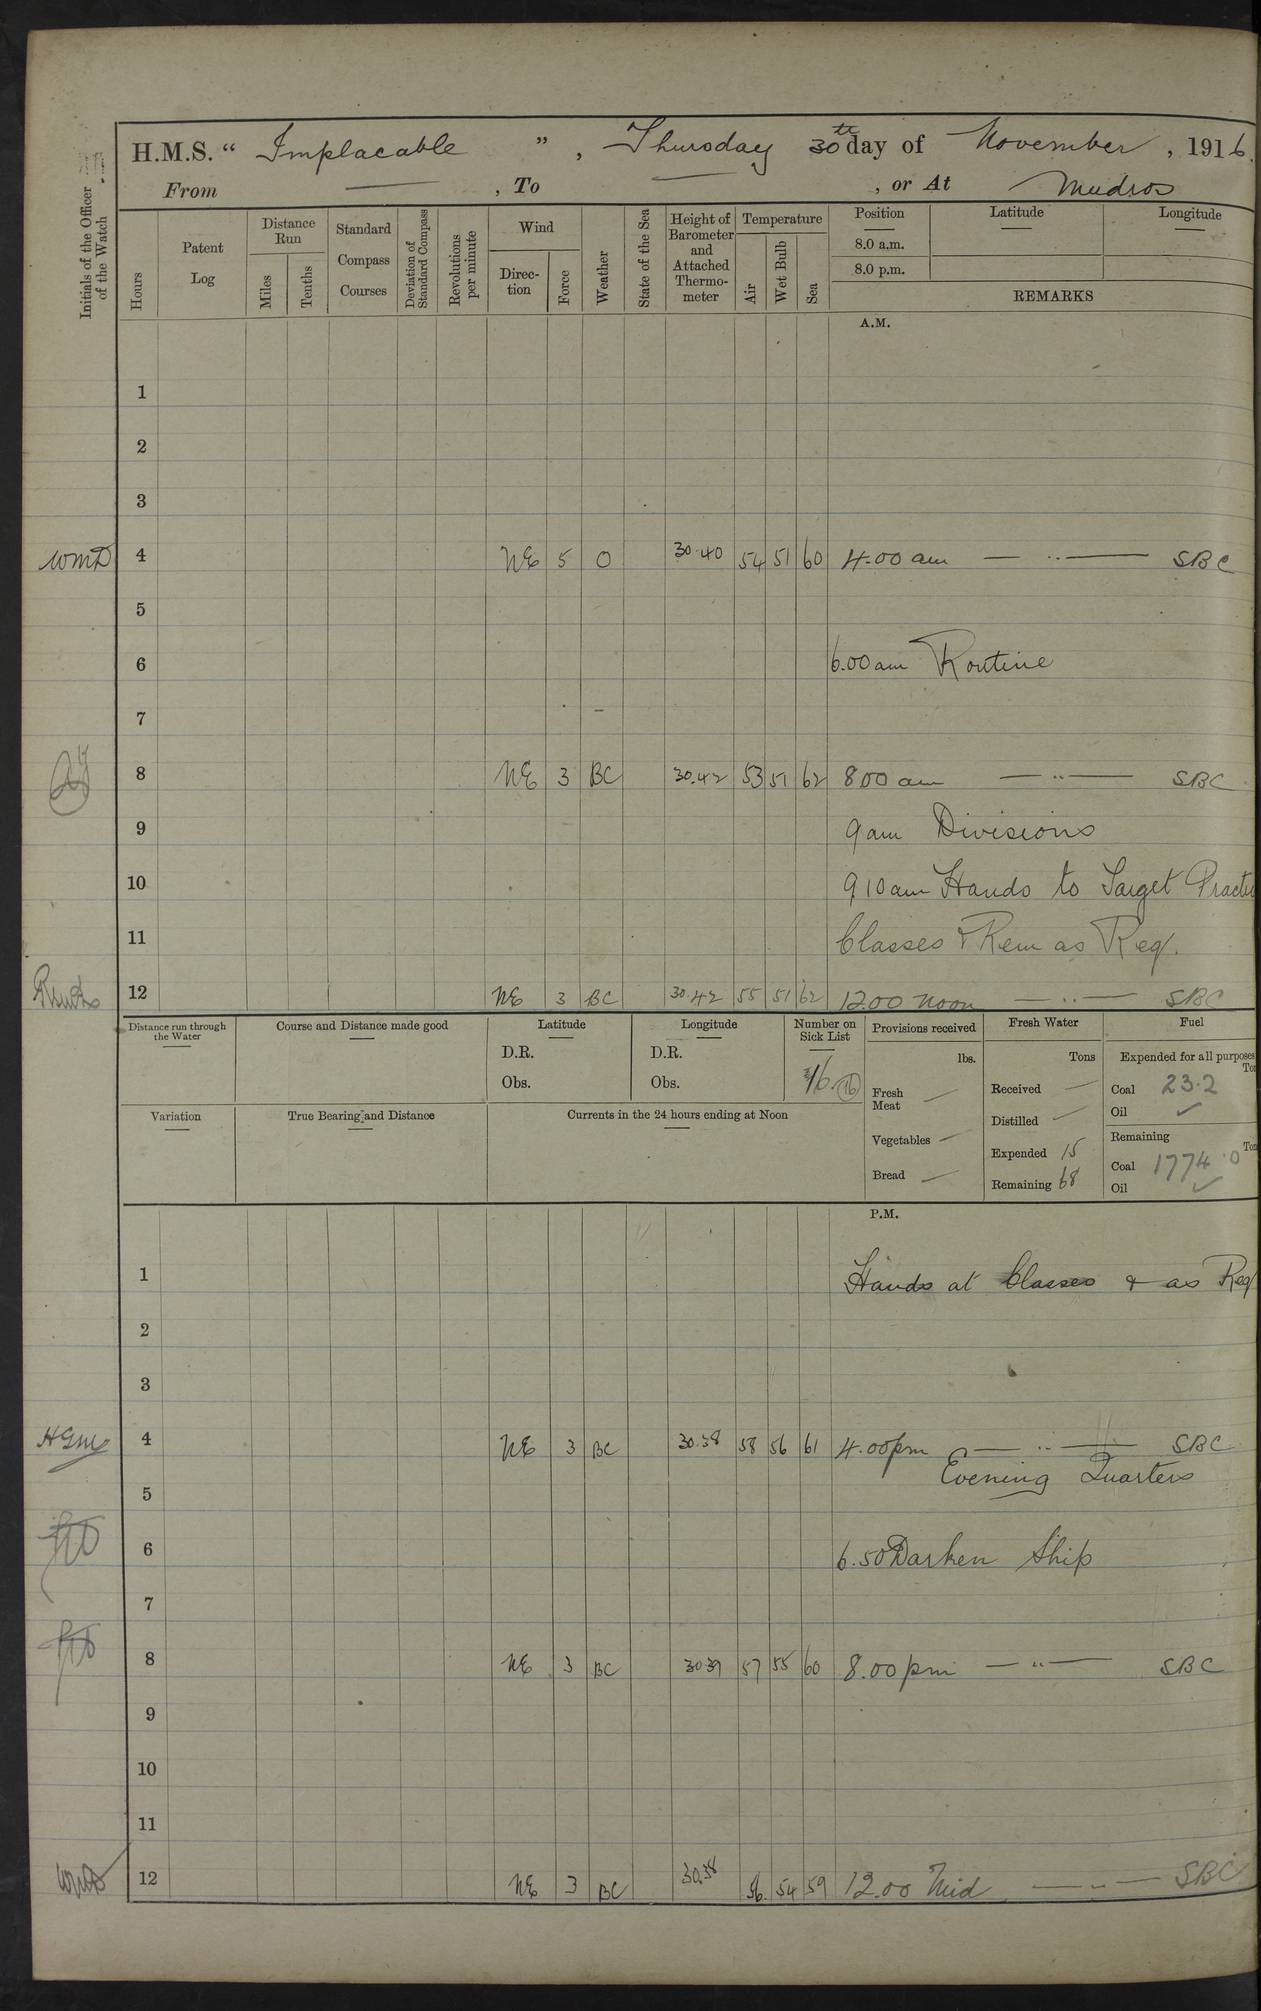 H.M.S. “ Implacable ” , Thursday 30th day of November , 1916.
From — , To — , or At Mudros
Initials of the Officer of the Watch
Hours
Patent Log
Distance Run
Miles
Tenths
Standard Compass Courses
Deviation of Standard Compass
Revolutions per minute
Wind
Direc-tion
Force
Weather
State of the Sea
Height of Barometer and Attached Thermo-meter
Temperature
Air
Wet Bulb
Sea
Position
8.0 a.m.
8.0 p.m.
Latitude
Longitude
REMARKS
A.M.
1
2
3
4 NE 5 O 30.40 54 51 60 4.00 am — .. — SBC
5
6 6.00 am Routine
7
8 NE 3 BC 30.42 53 51 62 8 00 am — .. — SBC
9 9 am Divisions
10 9 10 am Hands to Target Practi
11 Classes & Rem as Req.
12 NE 3 BC 30.42 55 51 62 12.00 noon — .. — SBC
Distance run through the Water
Course and Distance made good
Latitude
D.R.
Obs.
Longitude
D.R.
Obs.
Number on Sick List
16. (16)
Provisions received
lbs.
Fresh Meat —
Vegetables —
Bread —
Fresh Water
Tons
Received —
Distilled —
Expended 15
Remaining 68
Fuel
Expended for all purposes
Ton
Coal 23.2
Oil ✓
Remaining
Ton
Coal 1774.0
Oil ✓
Variation
True Bearing and Distance
Currents in the 24 hours ending at Noon
P.M.
1 Hands at Classes & as Req
2
3
4 NE 3 BC 30.38 58 56 61 4.00 pm — .. — SBC
Evening Quarters
5
6 6.50 Darken Ship
7
8 NE 3 BC 30 39 57 55 60 8.00 pm — .. — SBC
9
10
11
12 NE 3 BC 30.38 56. 54 59 12.00 Mid — .. — SBC